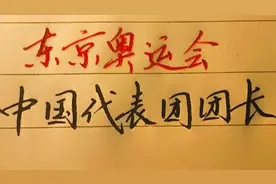 东京奥运会
中国代表团团长